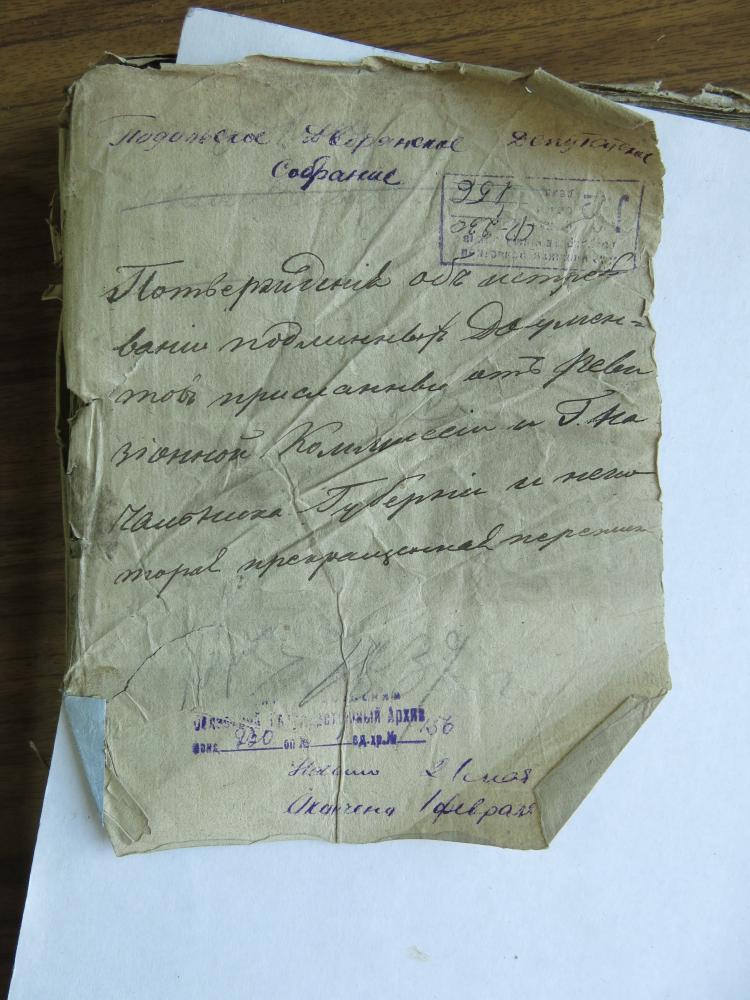 Подольское Дворянское Депутатское
Собрание
Ф-230
1
156
Потверждение объ истребо
ваніи подлинныхъ Докумен=
товъ присланныхъ отъ Реви
зіонной Коммиссіи и Г. На
чальника Губерніи и неко
торая прекращенная переписк
1837 г
Областной Государственный Архив
фонд 230 оп № 1 ед.хр.№ 156
Начато 21 мая
Окончено 1 февраля